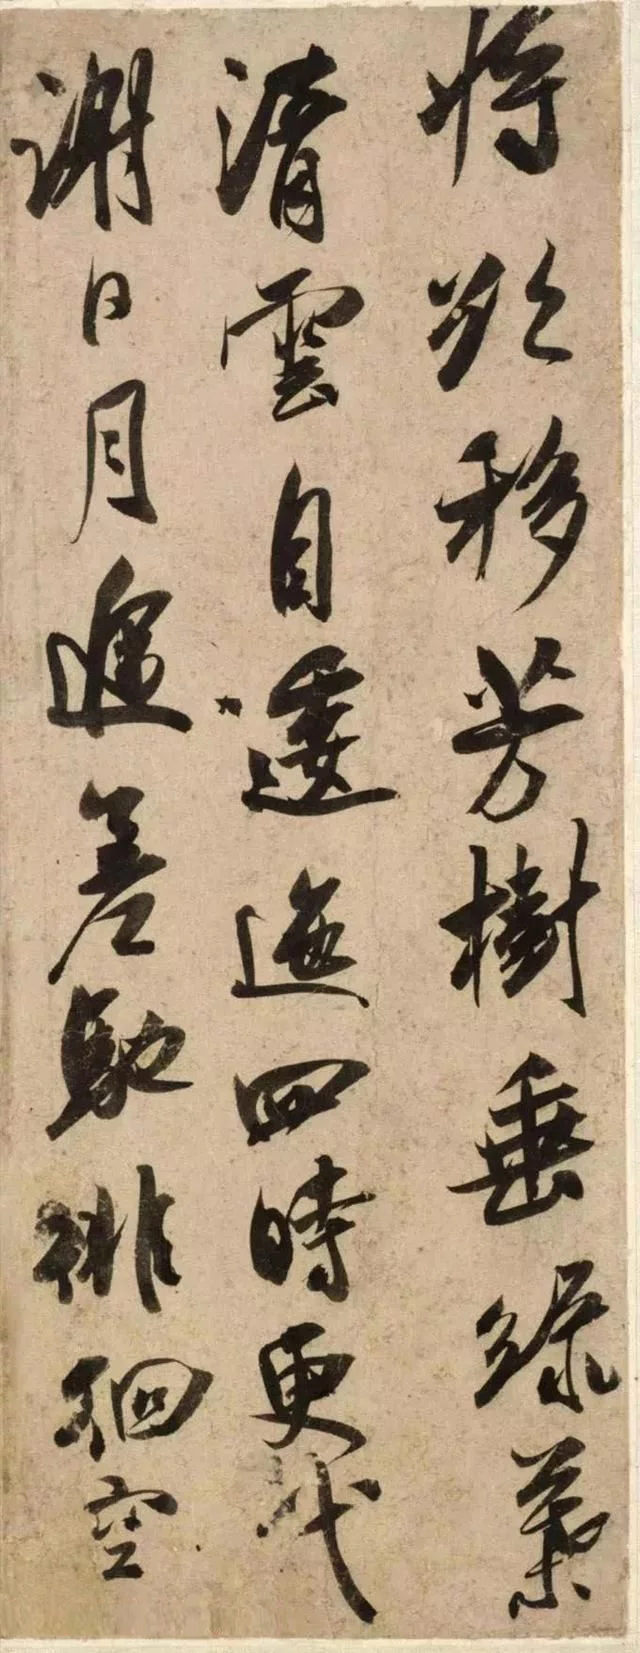 將欲移芳樹垂綠葉
清雲自逶迤四時更代
謝日月遞差馳徘徊空